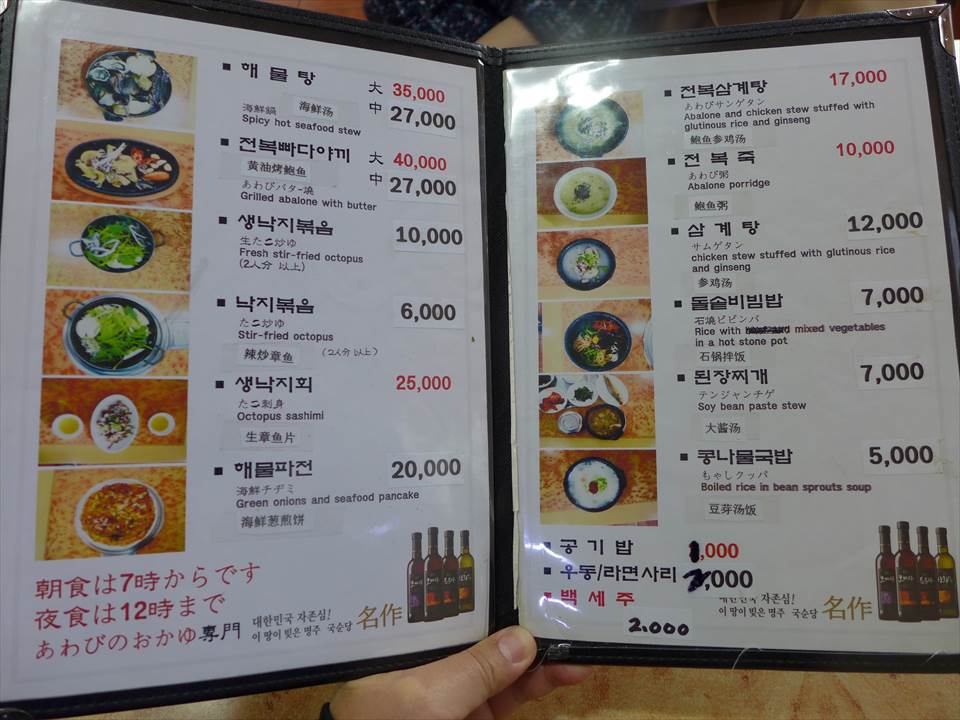 ■ 해물탕
大 35,000
海鮮鍋 海鮮汤
中 27,000
Spicy hot seafood stew
■ 전복빠다야끼 大 40,000
黄油烤鲍鱼
中 27,000
あわびバタ-燒
Grilled abalone with butter
■ 생낙지볶음 10,000
生たこ炒ゆ
Fresh stir-fried octopus
(2人分 以上)
■ 낙지볶음 6,000
たこ炒ゆ
Stir-fried octopus
辣炒章鱼 (2人分以上)
■ 생낙지회 25,000
たこ刺身
Octopus sashimi
生章鱼片
■ 해물파전 20,000
海鮮チヂミ
Green onions and seafood pancake
海鲜葱煎饼
朝食は7時からです
夜食は12時まで
あわびのおかゆ専門
대한민국 자존심!
이 땅이 빚은 명주 국순당 名作
■ 전복삼계탕 17,000
あわびサンゲタン
Abalone and chicken stew stuffed with
glutinous rice and ginseng
鲍鱼参鸡汤
■ 전복죽 10,000
あわび粥
Abalone porridge
鲍鱼粥
■ 삼계탕 12,000
サムゲタン
chicken stew stuffed with glutinous rice
and ginseng
参鸡汤
■ 돌솥비빔밥 7,000
石燒ビビンバ
Rice with mixed vegetables
in a hot stone pot
石锅拌饭
■ 된장찌개 7,000
テンジャンチゲ
Soy bean paste stew
大酱汤
■ 콩나물국밥 5,000
もやしクッパ
Boiled rice in bean sprouts soup
豆芽汤饭
■ 공기밥 1,000
■ 우동/라면사리 2,000
■ 백세주
2.000
대한민국 자존심!
이 땅이 빚은 명주 국순당 名作